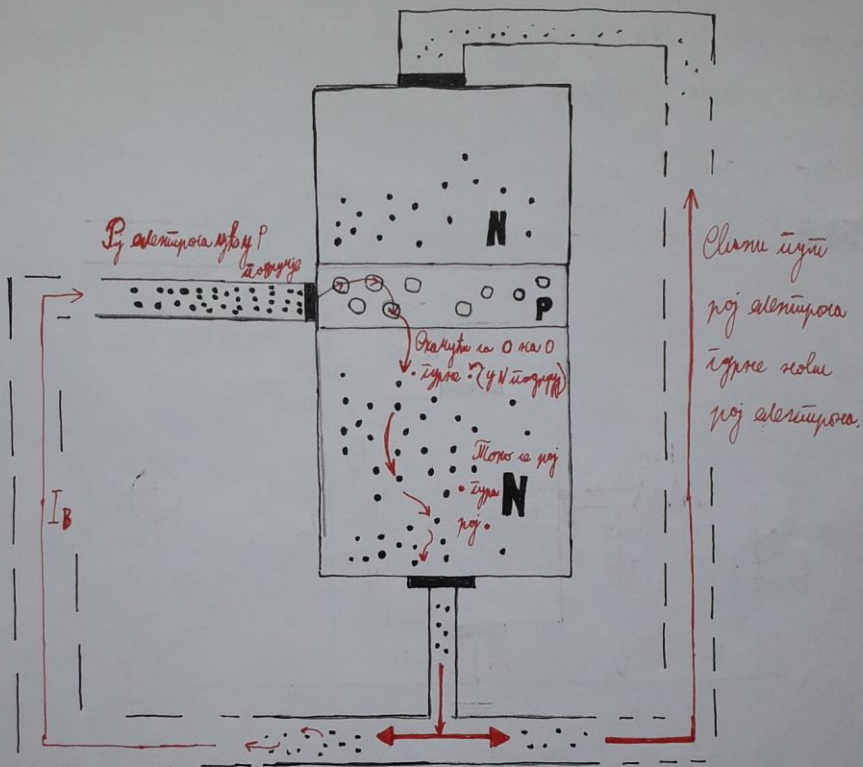 Рој електрона уђе у P
подручје
N
P
Скакући са O на O
гурне • (у N подруч)
Тако се рој
гура
рој •
N
I_B
Сваки пут
рој електрона
гурне нови
рој електрона.